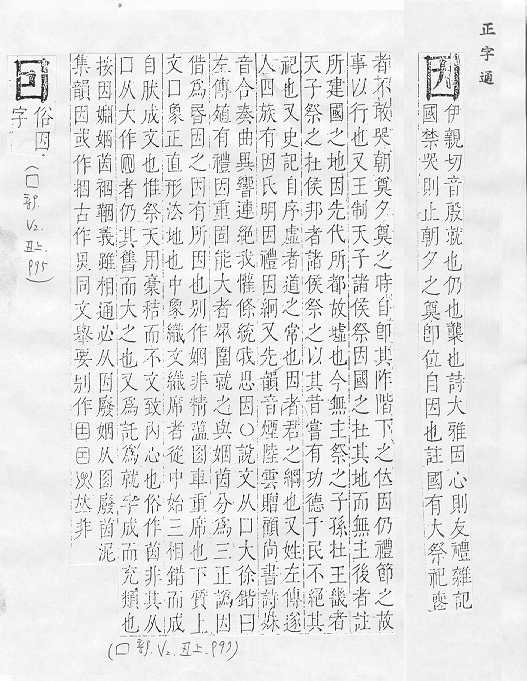 正字通
因 伊親切音殷就也仍也襲也詩大雅因心則友禮雜記
國禁哭則止朝夕之奠卽位自因也註國有大祭祀喪
者不敢哭朝奠夕奠之時自卽其阼階下之位因仍禮節之故
事以行也又王制天子諸侯祭因國之在其地而無主後者註
所建國之地因先代所都故墟也今無主祭之子孫在王畿者
天子祭之在侯邦者諸侯祭之以其昔嘗有功德于民不絕其
祀也又史記自序虛者道之常也因者君之綱也又姓左傳遂
人四族有因氏明因禮因絅又先韻音煙陸雲贈顧尚書詩殊
音合奏曲異響連絕我懽條統我思因○說文从口大徐鍇曰
左傳植有禮因重固能大者眾圍就之與姻茵分為三正譌因
借為昏因之因有所因也別作姻非精薀囡車重席也下質上
文口象正直形法地也中象織文織席者從中始三相錯而成
自朕成文也惟祭天用稾秸而不文致內心也俗作茵非其从
口从大作㘝者仍其舊而大之也又為託為就孚成而充類也
按因婣姻茵裀鞇義雖相通必从因廢姻从囡廢茵泥
集韻因或作捆古作㫒同文舉要別作
(口部. V2. 丑上. 993)
囙 俗因.
字
(口部. V2. 丑上. 995)